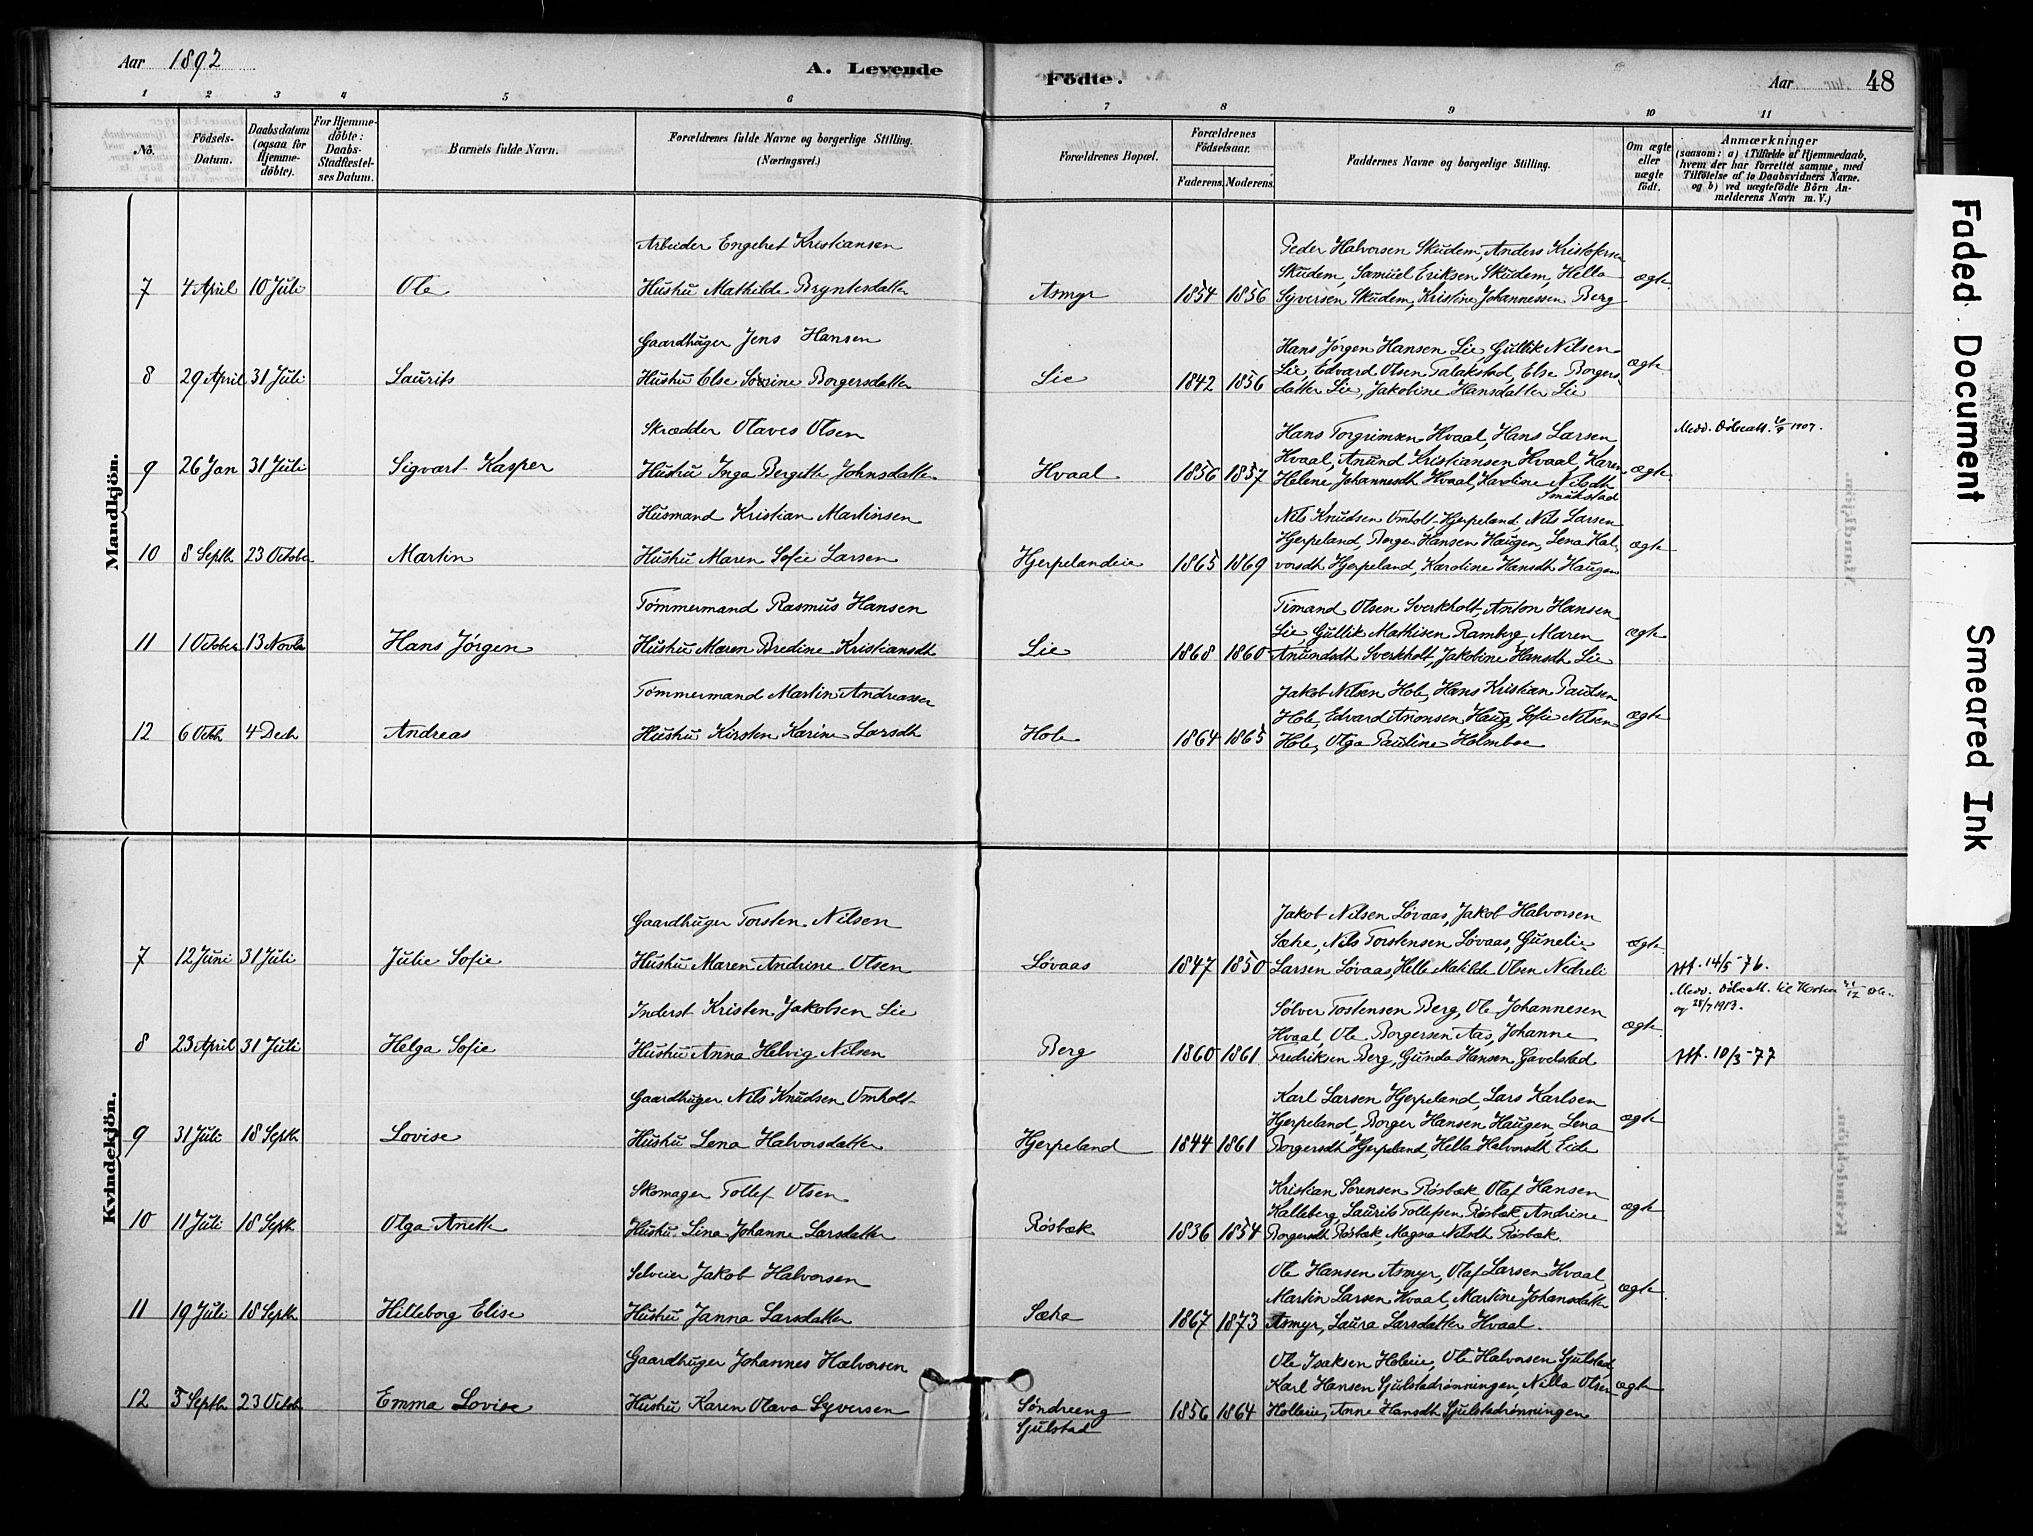 Aar 1892
A. Levende
Födte.
Aar
48
1 2 3 4 5 6 7 8 9 10 11
No.
Födsels-
Datum.
Daabsdatum
(ogsaa for
Hjemme-
döbte).
For Hjemme-
döbte:
Daabs-
Stadfæstel-
ses Datum.
Barnets fulde Navn.
Forældrenes fulde Navne og borgerlige Stilling.
(Næringsvei.)
Forældrenes Bopæl.
Forældrenes
Födselsaar.
Faderens. Moderens.
Faddernes Navne og borgerlige Stilling.
Om ægte
eller
uægte
födt.
Anmærkninger
(saasom: a) i Tilfælde af Hjemmedaab,
hvem der har forrettet samme, med
Tilföielse af to Daabsvidners Navne.
og b) ved uægtefödte Börn An-
melderens Navn m. V.)
Mandkjön.
7 4 April 10 Juli Ole
Arbeider Engebret Kristiansen
Hustru Mathilde Bryntesdatter
Asmyr 1854 1856
Peder Halvorsen Skudem, Anders Kristofersen
Skudem, Samuel Eriksen Skudem, Hella
Syversen Skudem, Kristine Johannessen Berg
ægte
8 29 April 31 Juli Laurits
Gaardbruger Jens Hansen
Hustru Else Sosine Borgersdatter
Lie 1842 1856
Hans Jörgen Hansen Lie, Gullik Nilsen
Lie, Edvard Olsen Talakstad, Else Borgers-
datter Lie, Jakobine Hansdatter Lie
ægte
9 26 Jan 31 Juli Sigvart Kasper
Skrædder Olaves Olsen
Hustru Inga Bergitte Johnsdatter
Hvaal 1856 1857
Hans Torgrimsen Hvaal, Hans Larsen
Hvaal, Anund Kristiansen Hvaal, Karen
Helene Johannesdtr Hvaal, Karoline Nilsdtr
Smükstad
ægte
Medd. Döbeatt. 1907.
10 8 Septbr 23 October Martin
Husmand Kristian Martinsen
Hustru Maren Sofie Larsen
Hjerpelandeie 1865 1869
Nils Knudsen Omholt-Hjerpeland, Nils Larsen
Hjerpeland, Borger Hansen Haugen, Lena Hal-
vorsdtr Hjerpeland, Karoline Hansdtr Haugen
ægte
11 1 October 13 Novbr Hans Jörgen
Tömmermand Rasmus Hansen
Hustru Maren Bredine Kristiansdtr
Lie 1868 1860
Timand Olsen Sverkholt, Anton Hansen
Lie, Gullik Mathisen Ramberg, Maren
Anundsdtr Sverkholt, Jakobine Hansdtr Lie
ægte
12 6 Octbr 4 Decbr Andreas
Tömmermand Martin Andreassen
Hustru Kirsten Karine Larsdtr
Hole 1864 1865
Jakob Nilsen Hole, Hans Kristian Paulsen
Hole, Edvard Anonsen Haug, Sofie Nilsen
Hole, Olga Pauline Holmboe
ægte
Kvindekjön.
7 12 Juni 31 Juli Julie Sofie
Gaardbruger Torsten Nilsen
Hustru Maren Andrine Olsen
Lövaas 1847 1850
Jakob Nilsen Lövaas, Jakob Halvorsen
Sæhe, Nils Torstensen Lövaas, Gunelie
Larsen Lövaas, Helle Matilde Olsen Nedreli
ægte
Att. 14/5-76.
8 23 April 31 Juli Helga Sofie
Inderst Kristen Jakobsen Lie
Hustru Anna Helvig Nilsen
Berg 1860 1861
Sölver Tostensen Berg, Ole Johannesen
Hvaal, Ole Borgersen Aas, Johanne
Fredriksen Berg, Gunda Hansen Gavelstad
ægte
Medd. Döbeatt. til
og 28/7 1913.
Att. 10/3-77
9 31 Juli 18 Septbr Lovise
Gaardbruger Nils Knudsen Omholt
Hustru Lena Halvorsdatter
Hjerpeland 1844 1861
Karl Larsen Hjerpeland, Lars Karlsen
Hjerpeland, Borger Hansen Haugen, Lena
Borgersdtr Hjerpeland, Hella Halvorsdtr Eide
ægte
10 11 Juli 18 Septbr Olga Anette
Skomager Tollef Olsen
Hustru Lina Johanne Larsdatter
Rösbæk 1836 1854
Kristian Sorensen Rösbæk, Olaf Hansen
Kalleberg, Laurits Tollefsen Rösbæk, Andrine
Borgersdtr Rösbæk, Magna Nilsdtr Rösbæk
ægte
11 19 Juli 18 Septbr Hilleborg Elise
Selveier Jakob Halvorsen
Hustru Janna Larsdatter
Sæhe 1867 1873
Ole Hansen Asmyr, Olaf Larsen Hvaal,
Martin Larsen Hvaal, Martine Johansdatter
Asmyr, Laura Larsdatter Hvaal.
ægte
12 5 Septbr 23 Octbr Emma Lovise
Gaardbruger Johannes Halvorsen
Hustru Karen Olava Syversen
Söndreeng
Sjulstad
1856 1864
Ole Isaksen Holeie, Ole Halvorsen Sjulstad,
Karl Hansen Sjulstadrønningen, Nilla Olsen
Holleie, Anne Hansdtr Sjulstadrønningen
ægte
Faded Document
Smeared Ink